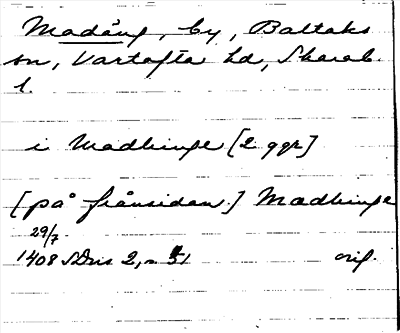 Madäng, by, Baltaks
sn, Vartofta hd, Skarab.
l.
i Madhinge [2 ggr]
[på frånsidan] Madhinge
29/7
1408 SDns 2, n 51 orig.